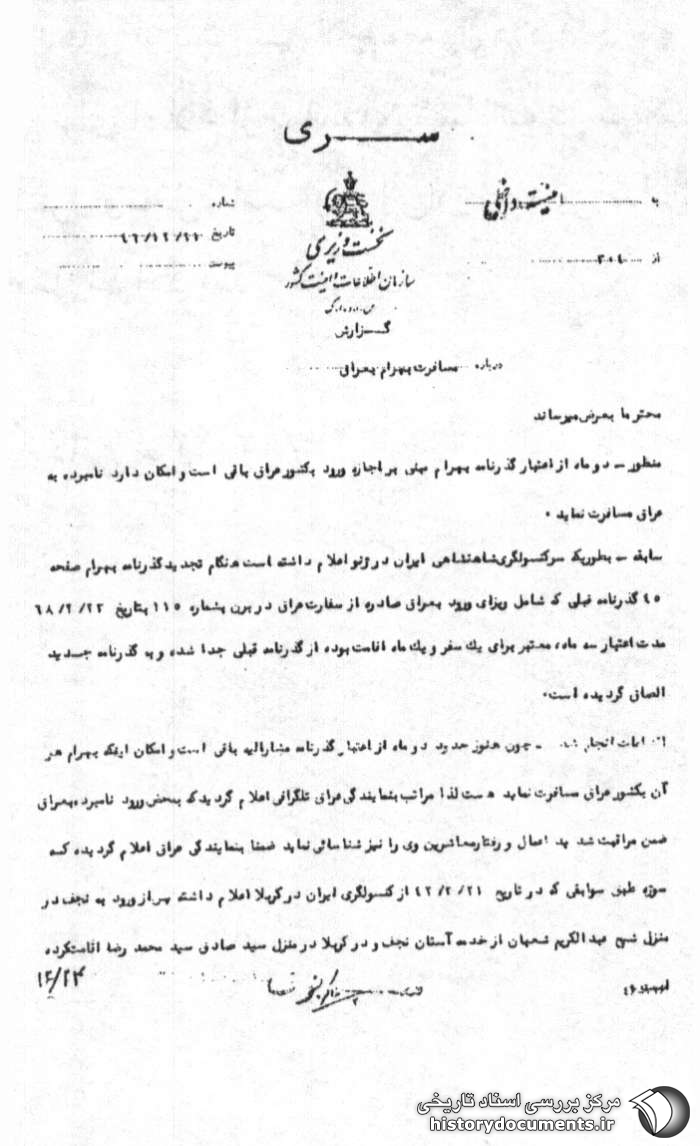 ســـری
به امنیت داخلی
شماره
نخست وزیری
تاریخ
سازمان اطلاعات و امنیت کشور
از
پیوست
س.ا.و.ا.ک
گـزارش
درباره مسافرت بهرام بعراق
محترما بعرض میرساند
منظور ـ دو ماه از اعتبار گذرنامه بهرام مبنی بر اجازه ورود بکشور عراق باقی است و امکان دارد نامبرده به
عراق مسافرت نماید .
سابقه ـ بطوریکه سرکنسولگری شاهنشاهی ایران در ژنو اعلام داشته است هنگام تجدید گذرنامه بهرام صفحه
۴۵ گذرنامه قبلی که شامل ویزای ورود بعراق صادره از سفارت عراق در برن بشماره ۱۱۵ بتاریخ
مدت اعتبار سه ماه، معتبر برای یک سفر و یک ماه اقامت بوده از گذرنامه قبلی جدا شده و به گذرنامه جدید
الصاق گردیده است.
اقدامات انجام شده ـ چون هنوز حدود دو ماه از اعتبار گذرنامه مشارالیه باقی است و امکان اینکه بهرام هر
آن بکشور عراق مسافرت نماید هست لذا مراتب بنمایندگی عراق تلگرافی اعلام گردید که بمحض ورود نامبرده بعراق
ضمن مراقبت شدید اعمال و رفتار معاشرین وی را نیز شناسائی نماید ضمنا بنمایندگی عراق اعلام گردیده که
سوژه طبق سوابقی که در تاریخ از کنسولگری ایران در کربلا اعلام داشته پس از ورود به نجف در
منزل شیخ عبدالکریم شعبان از خدمه آستان نجف و در کربلا در منزل سید صادق سید محمد رضا اقامت کرده
۱۲/۲۴
مرکز بررسی اسناد تاریخی
historydocuments.ir